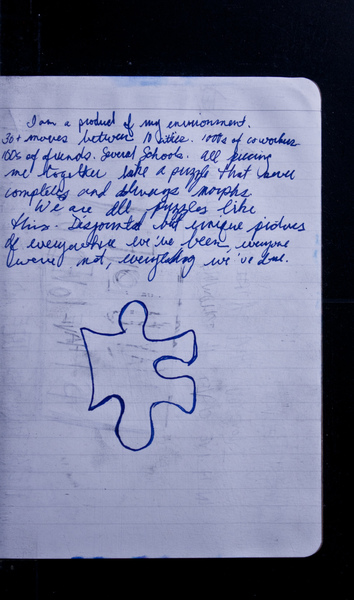 I am a product of my environment.
30+ moves between 10 cities. 1000s of coworkers.
100s of friends. Several Schools. All piecing
me together like a puzzle that never
completes and always morphs.
We are all puzzles like
this. Disjointed but unique pictures
of everywhere we've been, everyone
we've met, everything we've done.